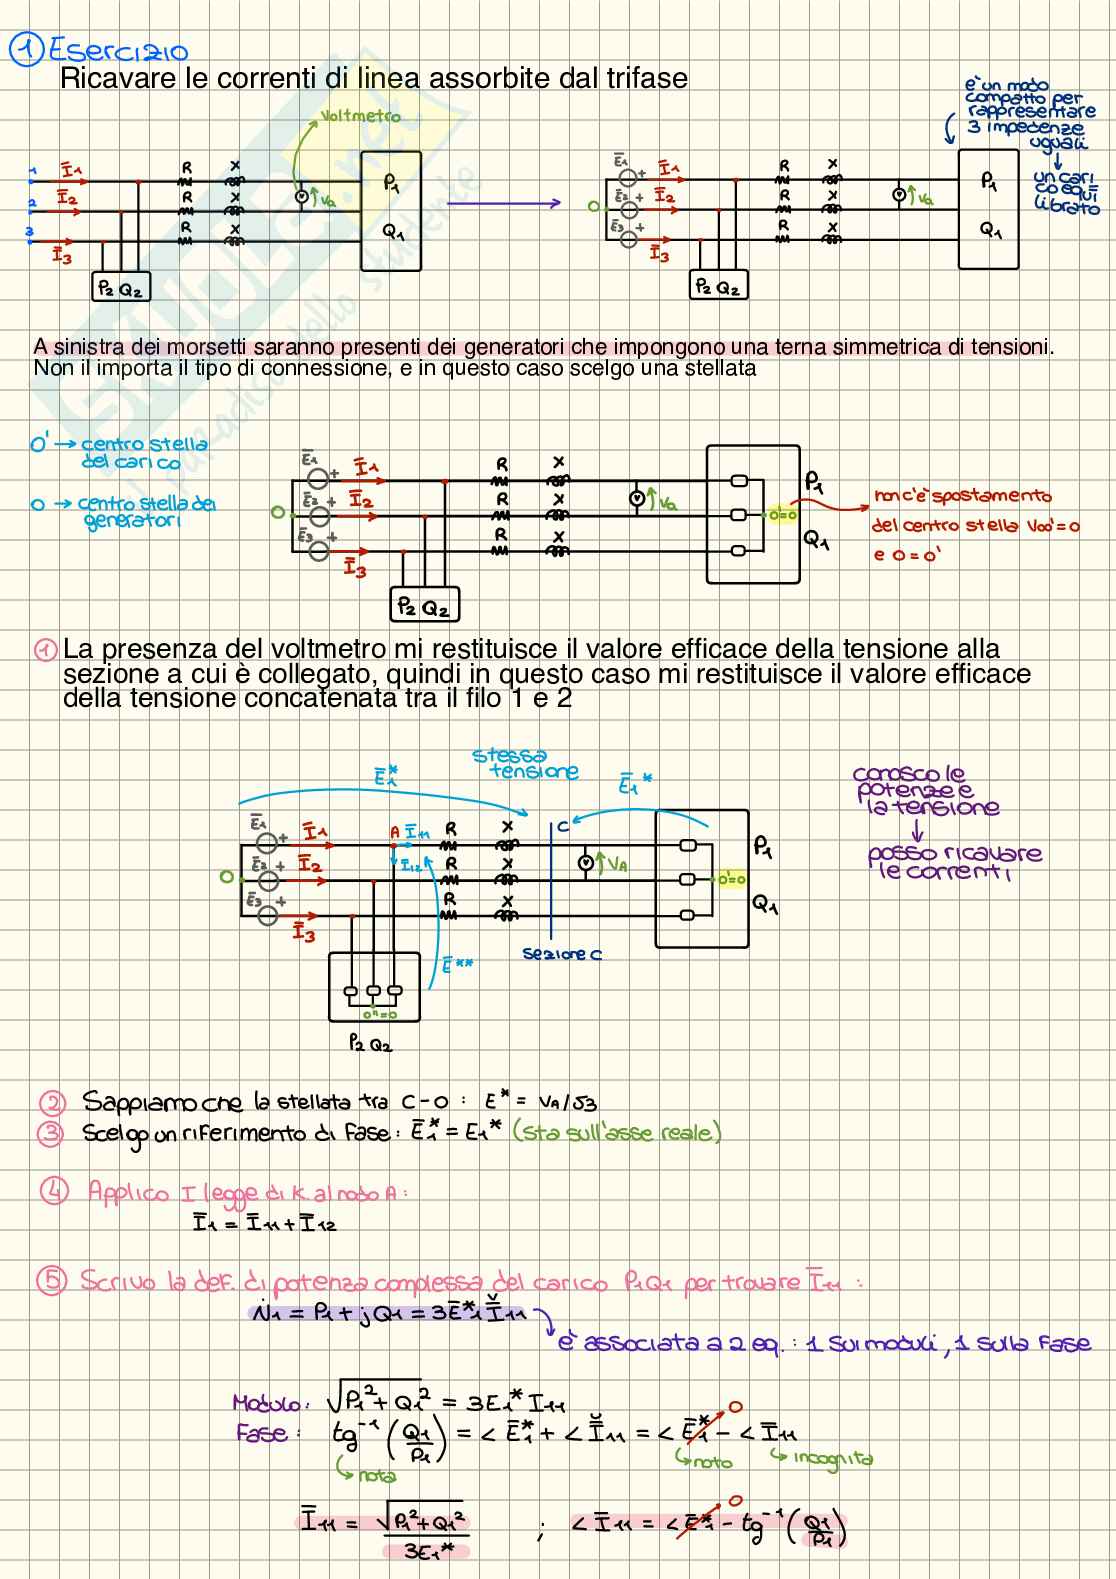 1 Esercizio
Ricavare le correnti di linea assorbite dal trifase
è un modo
compatto per
rappresentare
3 impedenze
uguali
un cari
co equi
librato
Voltmetro
1 Ī1 R X P1
2 Ī2 R X V VA
3 Ī3 R X Q1
P2 Q2
Ē1 + Ī1 R X P1
0 Ē2 + Ī2 R X V VA
Ē3 + Ī3 R X Q1
P2 Q2
A sinistra dei morsetti saranno presenti dei generatori che impongono una terna simmetrica di tensioni.
Non il importa il tipo di connessione, e in questo caso scelgo una stellata
0' → centro stella
del carico
0 → centro stella dei
generatori
Ē1 + Ī1 R X P1
0 Ē2 + Ī2 R X V VA 0'=0
Ē3 + Ī3 R X Q1
P2 Q2
non c'è spostamento
del centro stella V00'=0
e 0=0'
1 La presenza del voltmetro mi restituisce il valore efficace della tensione alla
sezione a cui è collegato, quindi in questo caso mi restituisce il valore efficace
della tensione concatenata tra il filo 1 e 2
stessa
tensione
Ē1* Ē1*
conosco le
potenze e
la tensione
↓
posso ricavare
le correnti
Ē1 + Ī1 A Ī11 R X C P1
0 Ē2 + Ī2 Ī12 R X V VA 0'=0
Ē3 + Ī3 R X Q1
Ē** sezione C
0''=0
P2 Q2
2 Sappiamo che la stellata tra C-0 : E* = VA/√3
3 Scelgo un riferimento di fase: Ē1* = E1* (sta sull'asse reale)
4 Applico I legge di K. al nodo A:
Ī1 = Ī11 + Ī12
5 Scrivo la def. di potenza complessa del carico P1Q1 per trovare Ī11 :
Ṅ1 = P1 + jQ1 = 3Ē*1 Ǐ11
è associata a 2 eq. : 1 sui moduli, 1 sulla fase
Modulo: √P1² + Q1² = 3E1* I11
Fase: tg⁻¹ (Q1/P1) = ∠ Ē1* + ∠ Ǐ11 = ∠ Ē1* - ∠ Ī11
0
nota noto incognita
Ī11 = √P1²+Q1² / 3E1* ; ∠ Ī11 = ∠ Ē*1 - tg⁻¹ (Q1/P1)
0
SKUOLA.net
il paradiso dello studente